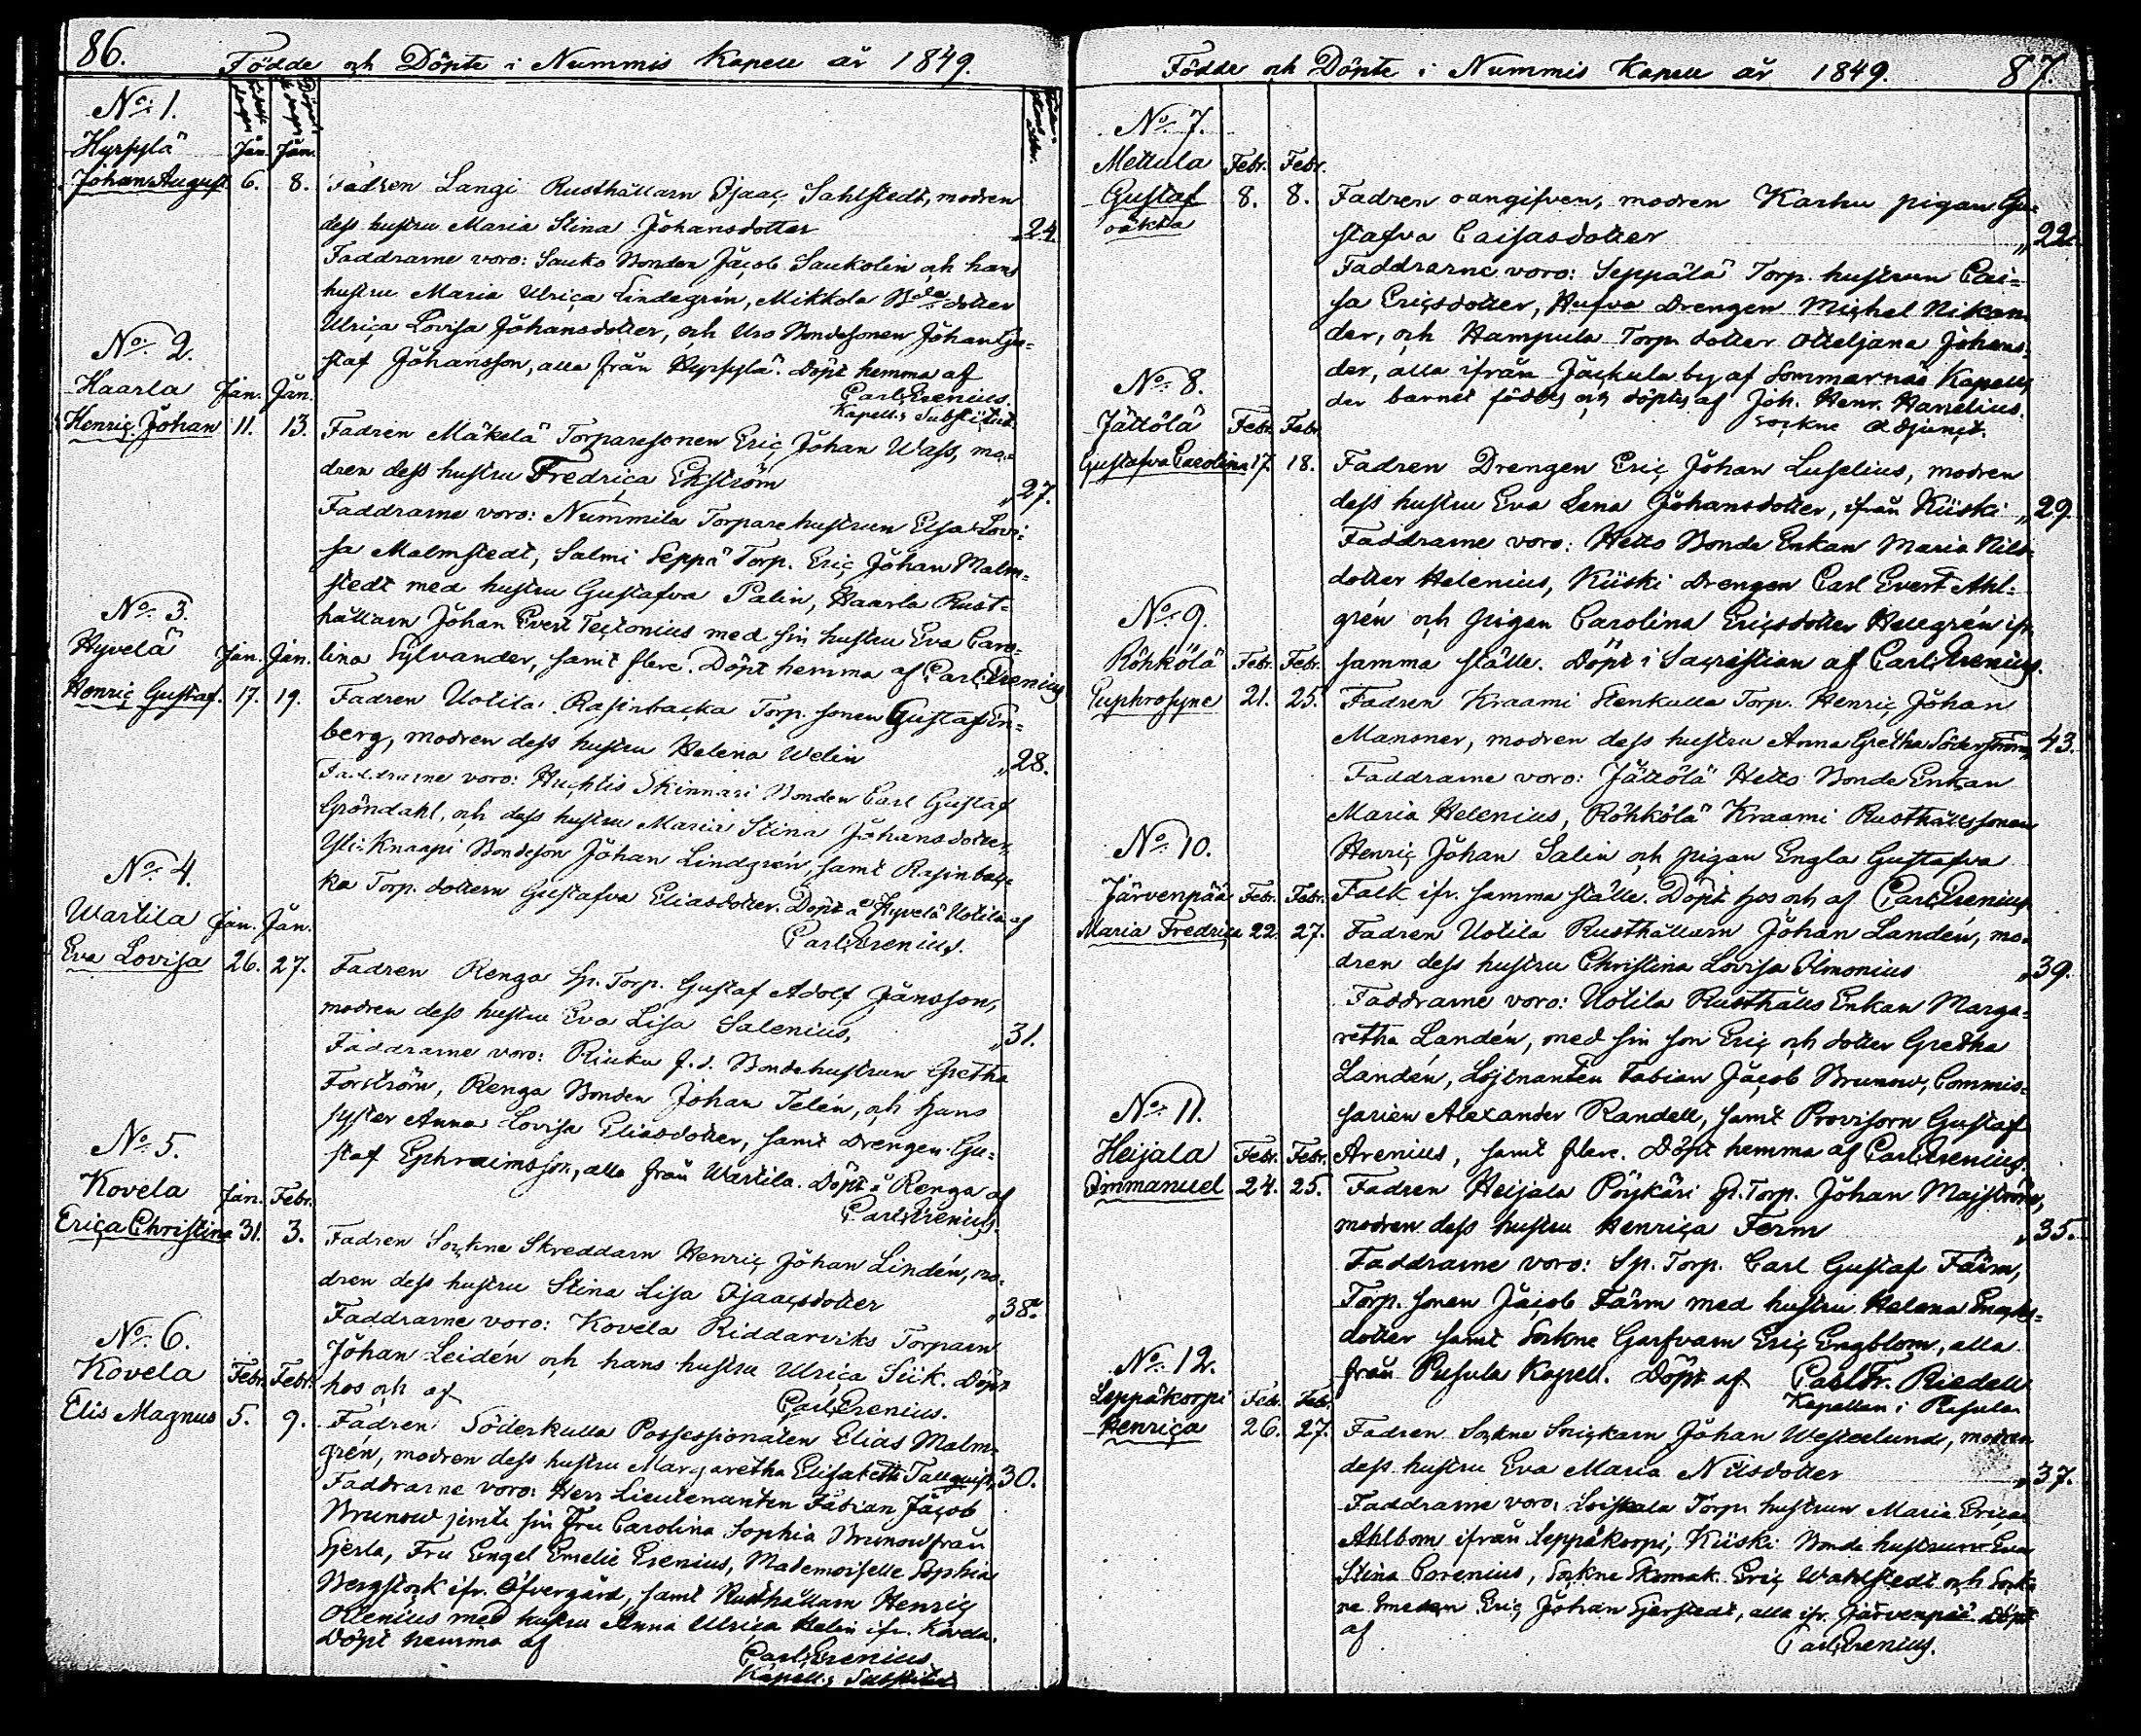 86.
Födde och Döpte i Nummis Kapell år 1849.
No: 1.
Hyrsylä Jan. Jan.
Johan August 6. 8. Fadren Langi Rusthållarn Isaac Sahlstedt, modren
dess hustru Maria Stina Johansdotter „24.
Faddrarne voro: Sauko Bonden Jacob Saukolin och hans
hustru Maria Ulrica Lindegrén, Mikkola Bde dotter
Ulrica Lovisa Johansdotter, och Uso Bondesonen Johan Gu=
staf Johansson, alla från Hyrsylä. Döpt hemma af
Carl Erenius.
Kapells Substitut.
No: 2.
Haarla Jan. Jan.
Henric Johan 11. 13. Fadren Mäkelä Torparesonen Eric Johan Wass, mo=
dren dess hustru Fredrica Ekström „27.
Faddrarne voro: Nummila Torparehustrun Elsa Lovi=
sa Malmstedt, Salmi Seppä Torp. Eric Johan Malm=
stedt med hustru Gustafva Palin, Haarla Rust=
hållarn Johan Evert Tectonius med sin hustru Eva Caro=
lina Sylvander, samt flere. Döpt hemma af Carl Erenius
No: 3.
Hyvelä Jan. Jan.
Henric Gustaf. 17. 19. Fadren Uotila Rasinbacka Torp. sonen Gustaf En=
berg, modren dess hustru Helena Welin „28.
Faddrarne voro: Huchtis Skinnari Bonden Carl Gustaf
Gröndahl, och dess hustru Maria Stina Johansdotter,
Yli-Knaapi Bondeson Johan Lindgrén, samt Rasinbac=
ka Torp. dottern Gustafva Eliasdotter. Döpt å Hyvelä Uotila af
Carl Erenius.
No: 4.
Wartila Jan. Jan.
Eva Lovisa 26. 27. Fadren Renga Sp. Torp. Gustaf Adolf Jansson,
modren dess hustru Eva Lisa Salenius, „31.
Faddrarne voro: Riuku f.d. Bondehustrun Gretha
Forström, Renga Bonden Johan Telén, och hans
syster Anna Lovisa Eliasdotter, samt Drengen Gu=
staf Ephraimsson, alla från Wartila. Döpt å Renga af
Carl Erenius.
No: 5.
Kovela Jan. Febr.
Erica Christina 31. 3. Fadren Sockne Skreddarn Henric Johan Lindén, mo=
dren dess hustru Stina Lisa Isaacsdotter „38.
Faddrarne voro: Kovela Riddarviks Torparn
Johan Leidén och hans hustru Ulrica Siik. Döpt
hos och af Carl Erenius.
No: 6.
Kovela Febr. Febr.
Elis Magnus 5. 9. Fadren Söderkulla Possessionaten Elias Malm=
grén, modren dess hustru Margaretha Elisabeth Tallquist, 30.
Faddrarne voro: Herr Lieutenanten Fabian Jacob
Brunow jemte sin Fru Carolina Sophia Brunow från
Gerla, Fru Engel Emelie Erenius, Mademoiselle Sophia
Bergstock ifr. Öfvergård, samt Rusthållarn Henric
Ollenius med hustru Anna Ulrica Helin ifr. Kovela.
Döpt hemma af Carl Erenius.
Kapells Substitut
Födde och Döpte i Nummis Kapell år 1849. 87.
No: 7.
Mettula Febr. Febr.
Gustaf 8. 8. Fadren oangifven, modren Karhu pigan Gu=
oäkta stafva Caisasdotter „22.
Faddrarne voro: Seppälä Torp. hustrun Cai=
sa Ericsdotter, Hufva Drengen Michel Nikan=
der, och Hampula Torp. dotter Otteljana Johans=
der, alla ifrån Jackula by af Sommarnäs Kapell,
der barnet föddes och döptes af Joh. Henr. Hanelius.
Sockne Adjunct.
No: 8.
Jättölä Febr. Febr.
Gustafva Carolina 17. 18. Fadren Drengen Eric Johan Luselius, modren
dess hustru Eva Lena Johansdotter, ifrån Kiiski „29.
Faddrarne voro: Hetto Bonde Enkan Maria Nils=
dotter Helenius, Kiiski Drengen Carl Evert Ahl=
grén och pigan Carolina Ericsdotter Hellgrén ifr.
samma ställe. Döpt i Sacristian af Carl Erenius.
No: 9.
Röhkölä Febr. Febr.
Euphrosyne 21. 25. Fadren Kraami Stenkulla Torp. Henric Johan
Mansner, modren dess hustru Anna Gretha Söderström „43.
Faddrarne voro: Jättölä Hetto Bonde Enkan
Maria Helenius, Röhkölä Kraami Rusthållssonen
Henric Johan Salin och pigan Engla Gustafva
Falk ifr. samma ställe. Döpt hos och af Carl Erenius
No: 10.
Järvenpää Febr. Febr.
Maria Fredrica 22. 27. Fadren Uotila Rusthållarn Johan Landén, mo=
dren dess hustru Christina Lovisa Ilmonius „39.
Faddrarne voro: Uotila Rusthålls Enkan Marga=
retha Landén, med sin son Eric och dotter Gretha
Landén, Löjtnanten Fabian Jacob Brunow, Commis=
sarien Alexander Randell, samt Provisorn Gustaf
Arenius, samt flere. Döpt hemma af Carl Erenius.
No: 11.
Heijala Febr. Febr.
Immanuel 24. 25. Fadren Heijala Pöykäri Sp. Torp. Johan Majström,
modren dess hustru Henrica Ferm „35.
Faddrarne voro: Sp. Torp. Carl Gustaf Färm,
Torp. sonen Jacob Färm med hustru Helena
dotter samt Sockne Garfvarn Eric Engblom, alla
från Pusula Kapell. Döpt af Carl Fr. Riedell
Kapellan i Pusula
No: 12.
Leppäkorpi Febr. Febr.
Henrica 26. 27. Fadren Sockne Snickarn Johan Westerlund, modren
dess hustru Eva Maria Nilsdotter „37.
Faddrarne voro: Torp. hustrun Maria Erica
Ahlbom ifrån Leppäkorpi, Kiiski Bonde hustrun Eva
Stina Corenius, Sockne Skomak. Eric Wahlstedt och Sock=
ne Smeden Eric Johan Gerstedt, alla ifr. Järvenpää. Döpt
af Carl Erenius.